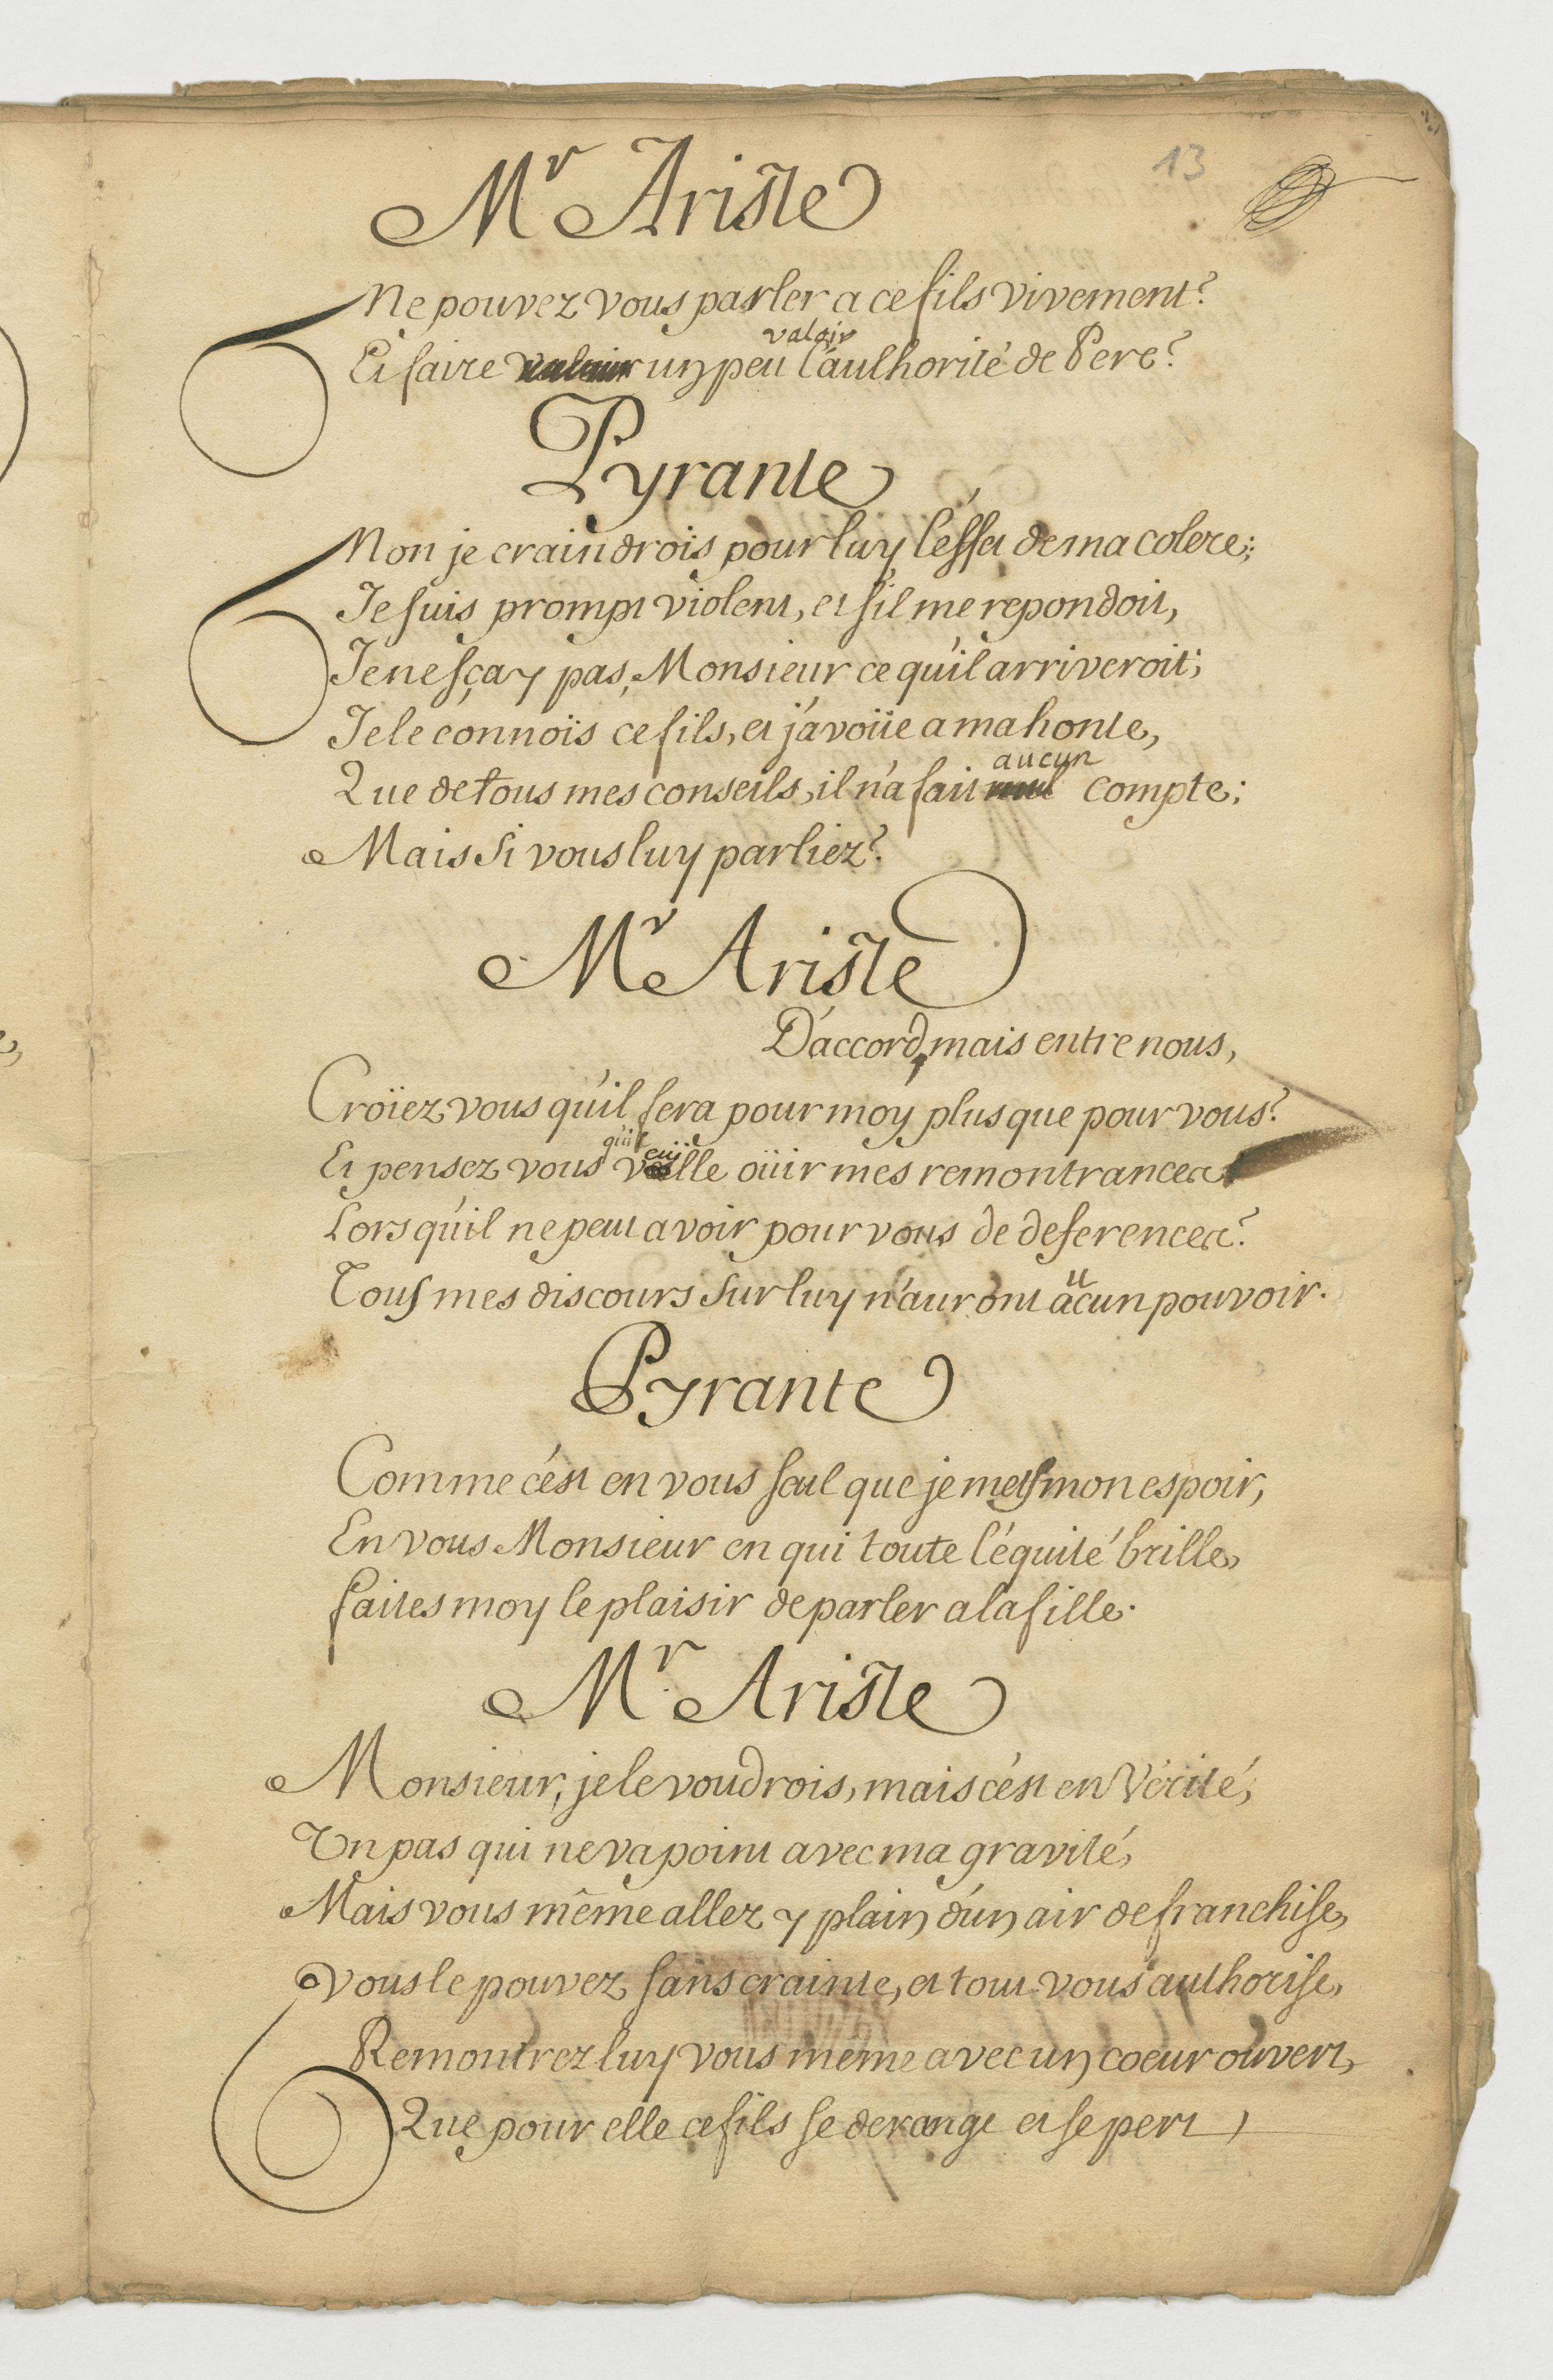 13
Mr Ariste
Ne pouvez vous parler a ce fils vivement?
Et faire valoir un peu l'authorité de Pere?
valoir
Pyrante
Non je craindrois pour luy l'effet de ma colere;
Je suis prompt violent, et s'il me repondoit,
Je ne sçay pas, Monsieur ce qu'il arriveroit;
Je le connoïs ce fils, et j'avoüe a ma honte,
aucun
Que de tous mes conseils, il n'a fait nul compte;
Mais si vous luy parliez?
Mr Ariste
D'accord, mais entre nous,
Croïez vous qu'il fera pour moy plus que pour vous?
Et pensez vous qu'il veüille oüir mes remontrances
Lors qu'il ne peut avoir pour vous de deferences?
Tous mes discours sur luy n'auront aucun pouvoir.
Pyrante
Comme c'est en vous seul que je mets mon espoir,
En vous Monsieur en qui toute l'équité brille,
faites moy le plaisir de parler a la fille.
Mr Ariste
Monsieur, je le voudrois, mais c'est en Vérité,
Un pas qui ne va point avec ma gravité,
Mais vous même allez y plain d'un air de franchise,
Vous le pouvez sans crainte, et tout vous authorise,
Remontrez luy vous meme avec un coeur ouvert,
Que pour elle ce fils se derange et se pert,